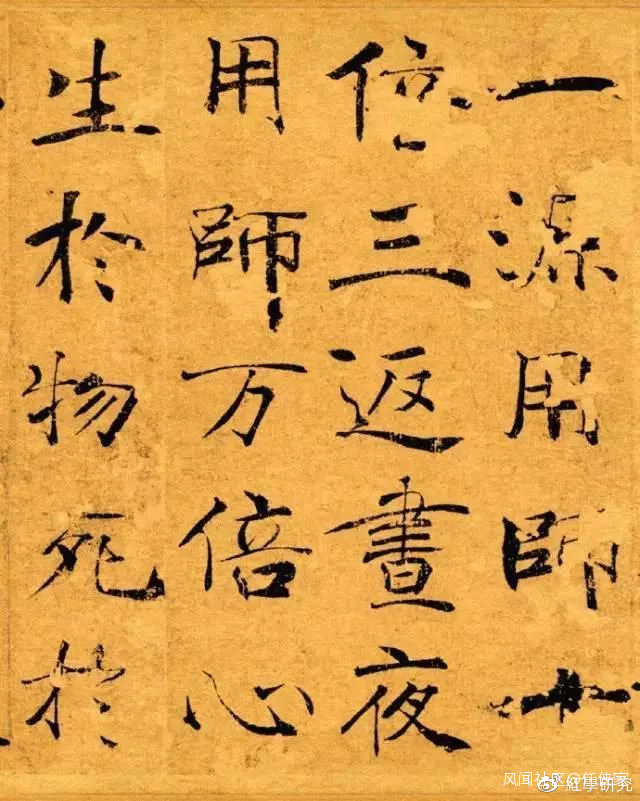 一源用師十
倍三返晝夜
用師万倍心
生於物死於
风闻社区@任侠客
紅學研究